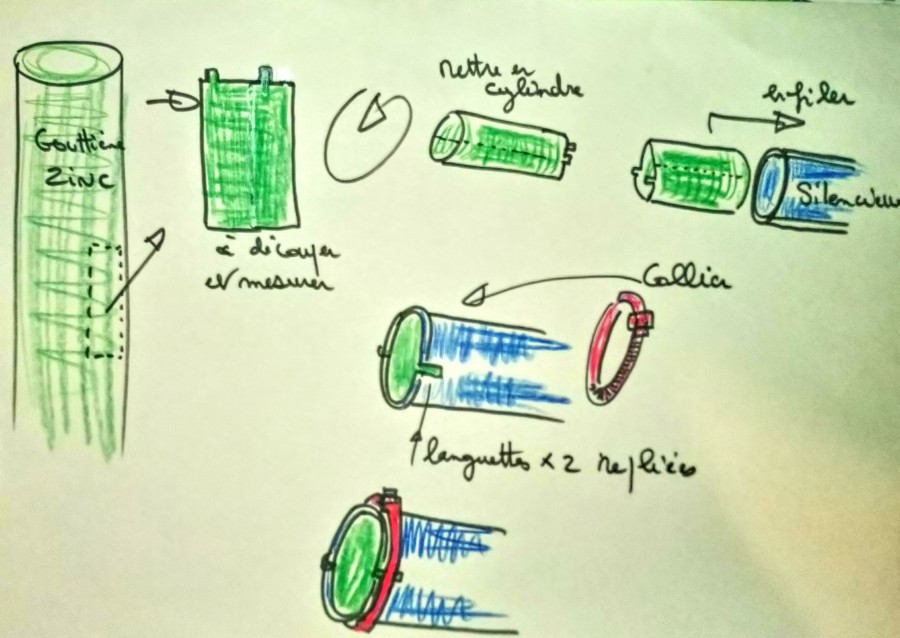 Gouttière
ZINC
à découper
et mesurer
Mettre en
cylindre
enfiler
Silencieux
Collier
languettes x 2 repliées